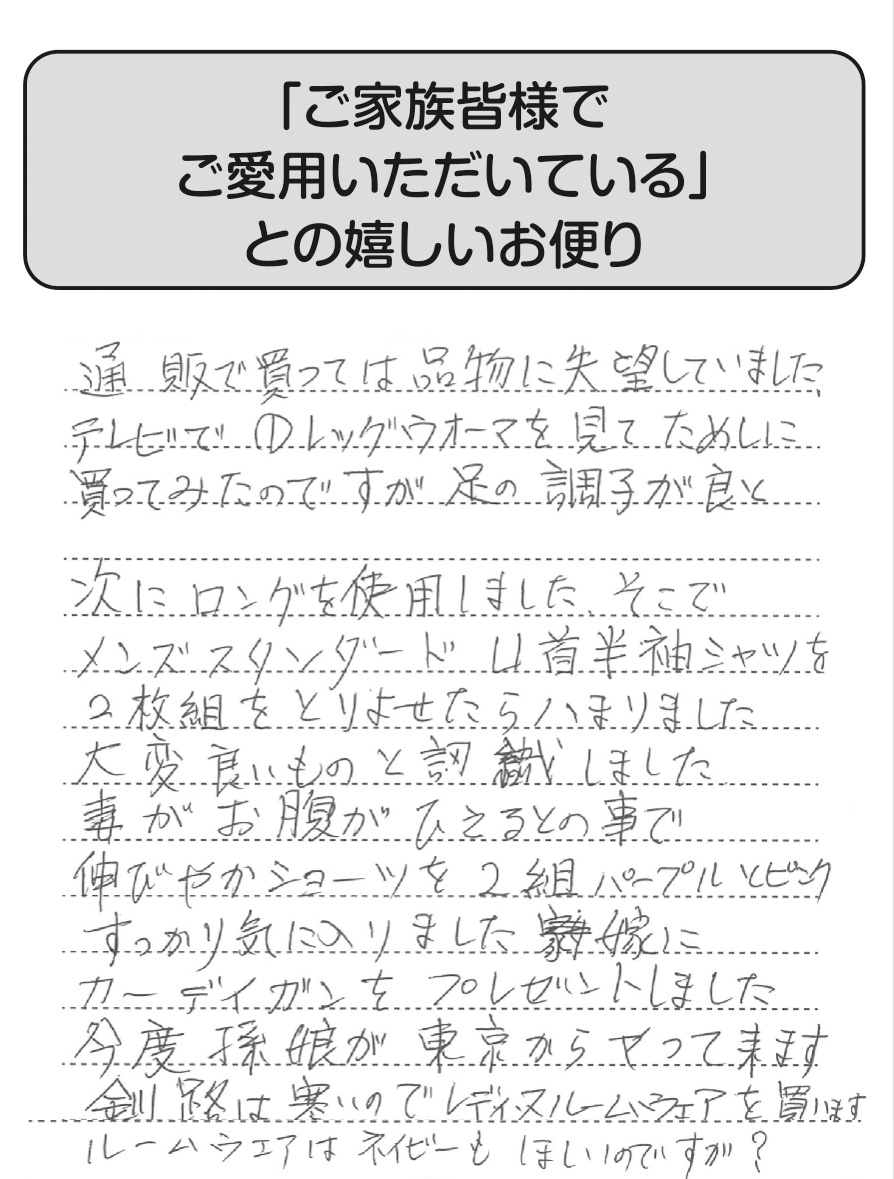 「ご家族皆様で
ご愛用いただいている」
との嬉しいお便り
通販で買っては品物に失望していました、
テレビで①レッグウオーマを見てためしに
買ってみたのですが足の調子が良と
次にロングを使用しました、そこで
メンズスタンダードU首半袖シャツを
2枚組をとりよせたらハまりました
大変良いものと認識しました
妻がお腹がひえるとの事で
伸びやかショーツを2組パープルとピンク
すっかり気に入りました 嫁に
カーディガンをプレゼントしました
今度孫娘が東京からやって来ます
釧路は寒いのでレディスルームウェアを買います
ルームウェアはネイビーもほしいのですが?